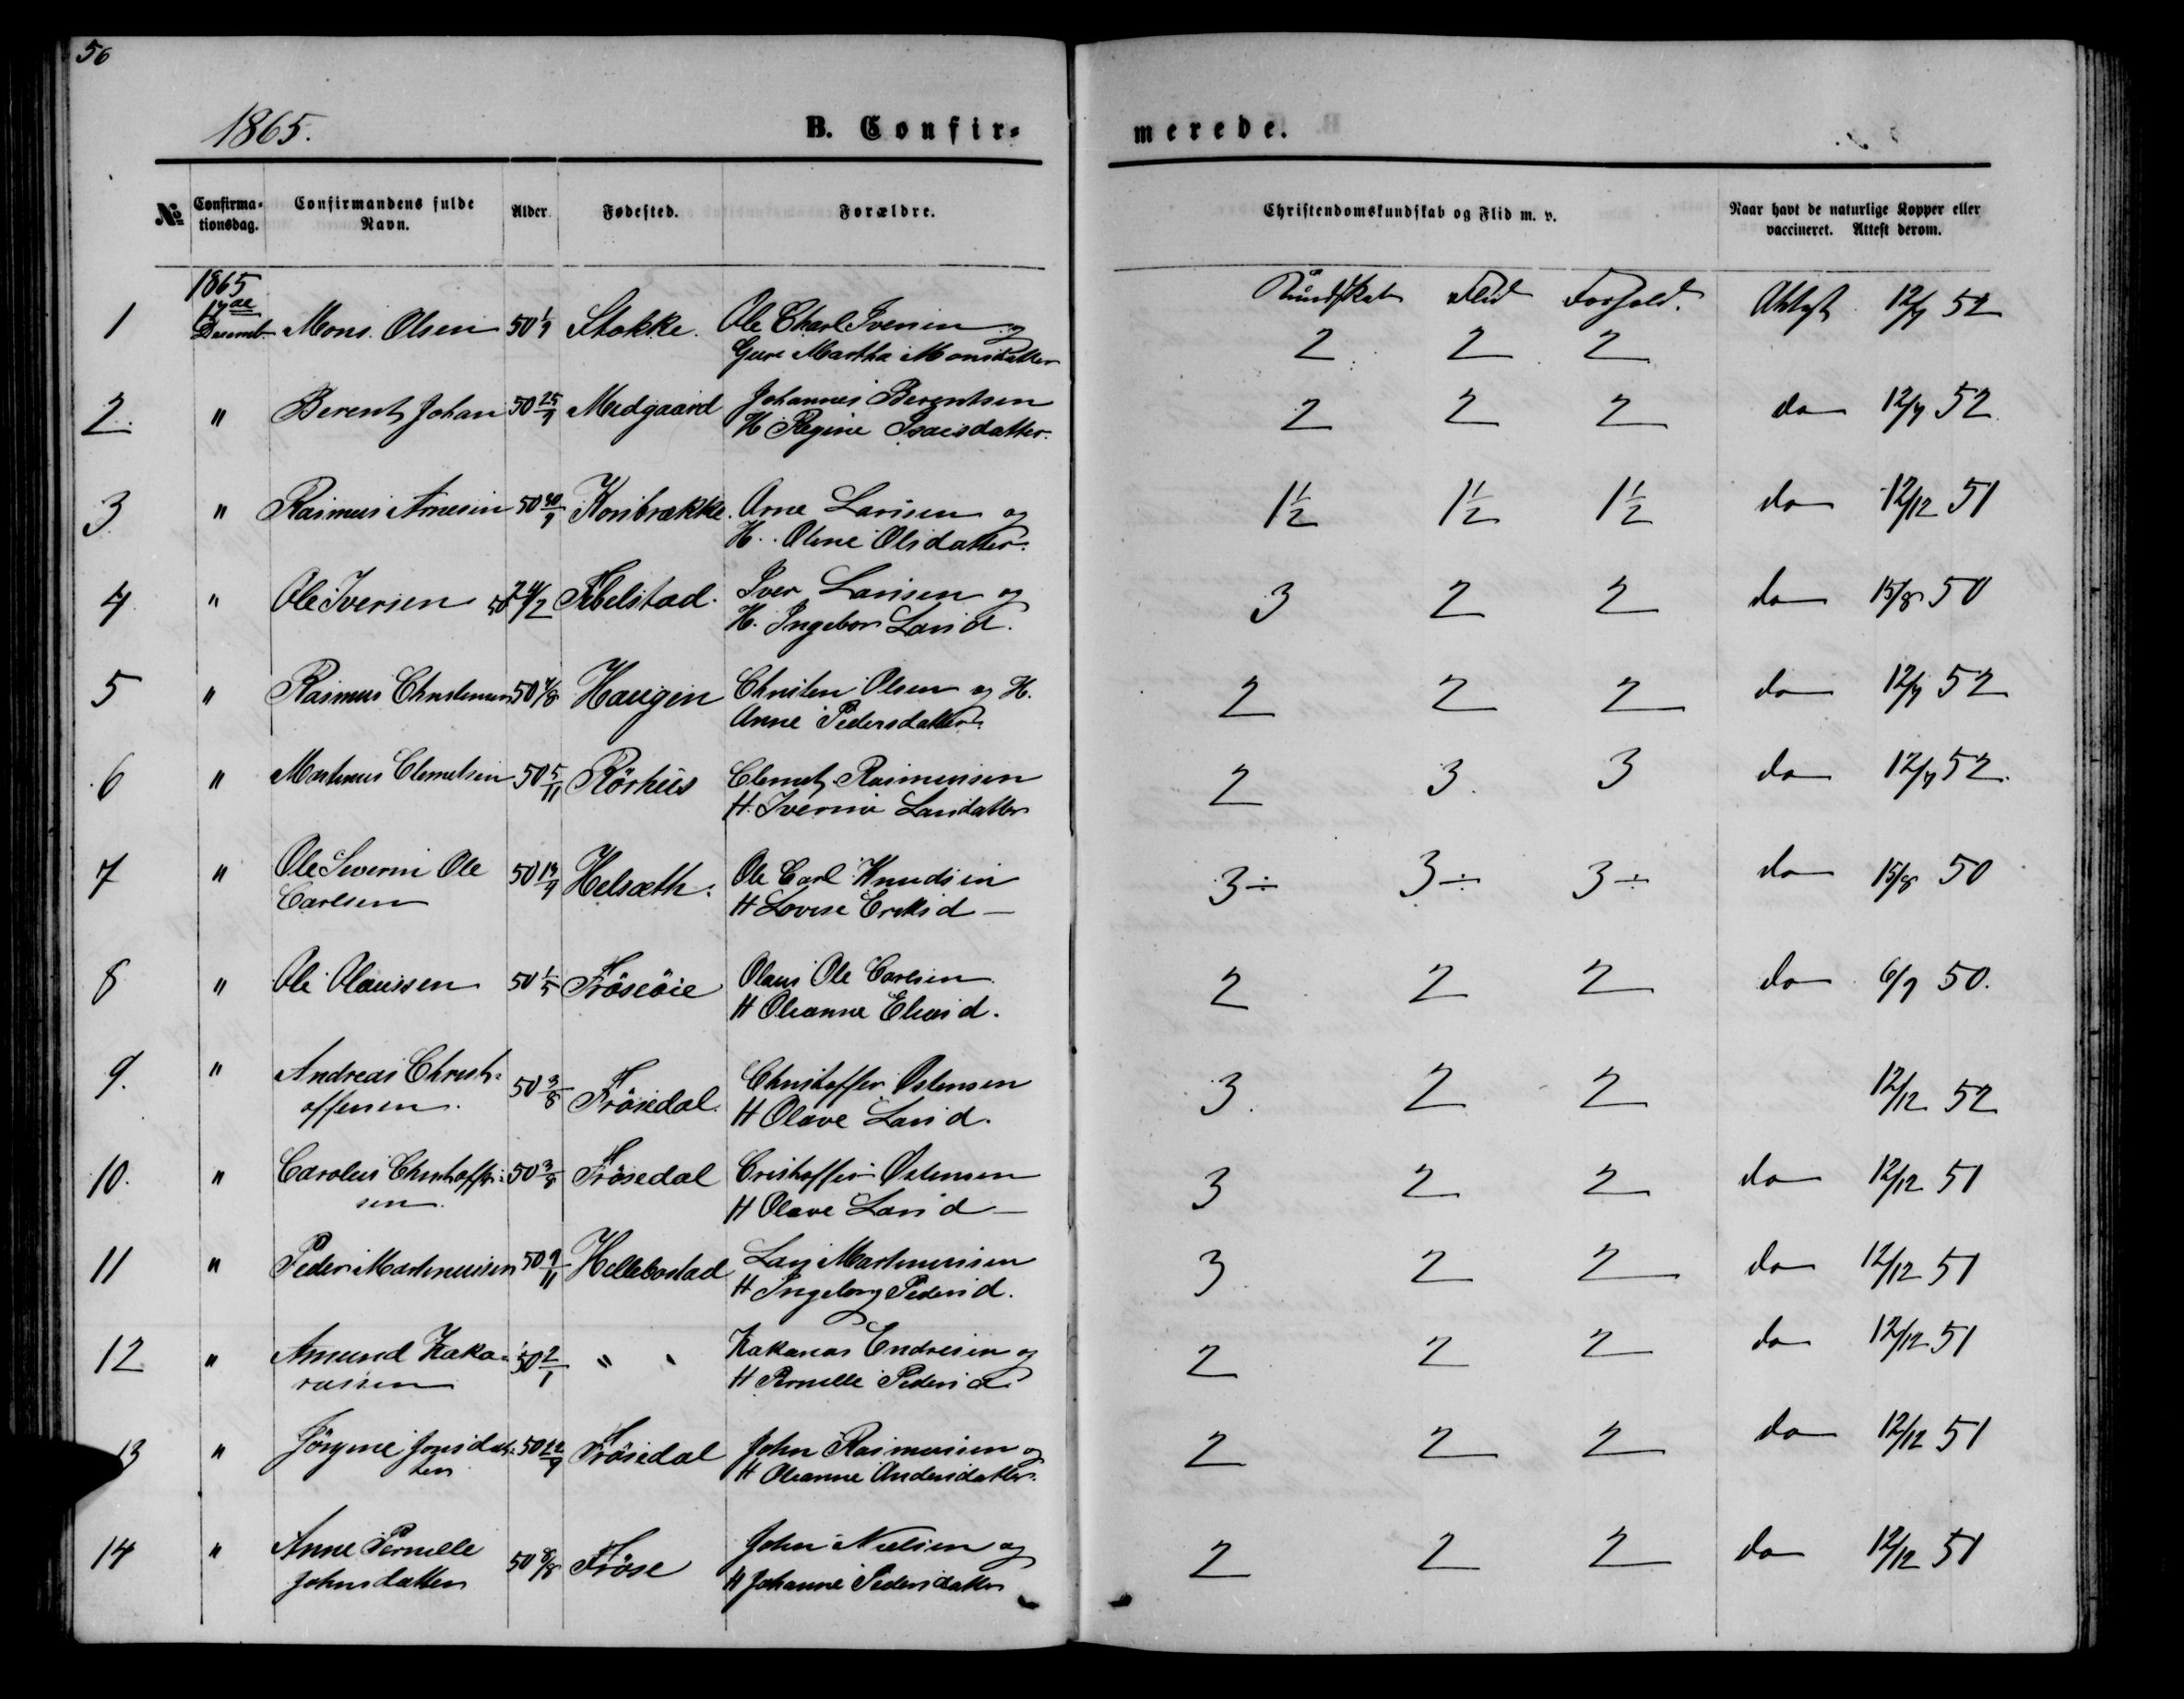 56
1865.
B. Confir=
merede.
№ Confirma=tionsdag. Confirmandens fulde Navn. Alder. Fødested. Forældre. Christendomskundskab og Flid m. v. Naar havt de naturlige Kopper eller vaccineret. Attest derom.
1865
17de
Kundskab Flid Forhold.
1 Decemb. Mons Olsen 50 1/9 Stokke. Ole Charl Iversen og 2 2 2 Attest 12/7 52
Gure Martha Monsdatter
2. " Berent Johan 50 25/9 Midgaard Johannes Berentsen 2 2 2 do 12/7 52
H Regine Isacsdatter.
3. " Rasmus Arnesen 50 30/9 Konsbrekke. Arne Larsen og 1½ 1½ 1½ do 12/12 51
H. Oline Olsdatter.
4 " Ole Iversen 50 24/2 Febelstad. Iver Larsen og 3 2 2 do 15/8 50
H. Ingebor Larsd.
5 " Rasmus Christensen 50 4/8 Haugen Christen Olsen og H. 2 2 2 do 12/7 52
Anne Pedersdatter.
6 " Martinus Clemetsen 50 5/11 Rörhus Clemet Rasmussen 2 3. 3 do 12/7 52.
H. Iverine Larsdatter
7 " Ole Severin Ole 50 13/9 Helsæth. Ole Carl Knudsen 3÷ 3÷ 3÷ do 15/8 50
Carlsen H Lovise Eriksd
8 " Ole Olaussen 50 1/5 Frösöie Olaus Ole Carlsen 2 2 2 do 6/7 50.
H Oleanne Eliasd.
9. " Andreas Christ= 50 3/8 Frösedal. Christoffer Østensen 3. 2 2 12/12 52
offersen. H Olave Larsd.
10. " Carolus Christoffer= 50 3/8 Frösedal Cristoffer Østensen 3 2 2 do 12/12 51
sen. H Olave Larsd
11 " Peder Martinussen 50 9/11 Hellebostad Lars Martinussen 3 2 2 do 12/12 51
H Ingeborg Pedersd.
12 " Amund Zaka= 50 2/1 " " Zakarias Endresen og 2 2 2 do 12/12 51
riassen H Pernille Pedersd
13 " Jörgine Jonsdat= 50 22/9 Frösedal John Rasmussen og 2 2 2 do 12/12 51
ter H Oleanne Andersdatter.
14 " Anne Pernille 50 8/8 Fröse John Nielsen og 2 2 2 do 12/12 51
Johnsdatter H Johanne Pedersdatter